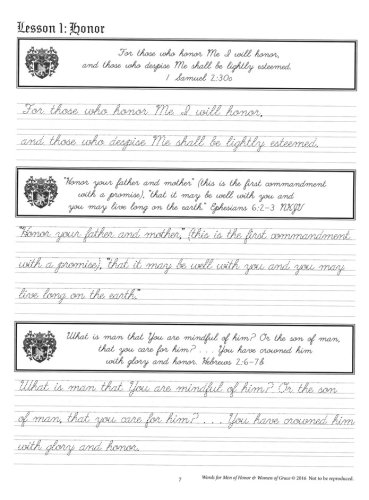 Lesson 1: Honor
For those who honor Me I will honor,
and those who despise Me shall be lightly esteemed.
1 Samuel 2:30c
For those who honor Me I will honor,
and those who despise Me shall be lightly esteemed.
"Honor your father and mother" (this is the first commandment
with a promise), "that it may be well with you and
you may live long on the earth." Ephesians 6:2-3 NKJV
"Honor your father and mother," (this is the first commandment
with a promise), "that it may be well with you and you may
live long on the earth."
What is man that You are mindful of him? Or the son of man,
that you care for him? . . . You have crowned him
with glory and honor. Hebrews 2:6-7b
What is man that You are mindful of him? Or the son
of man, that you care for him? . . . You have crowned him
with glory and honor.
7
Words for Men of Honor & Women of Grace © 2016 Not to be reproduced.